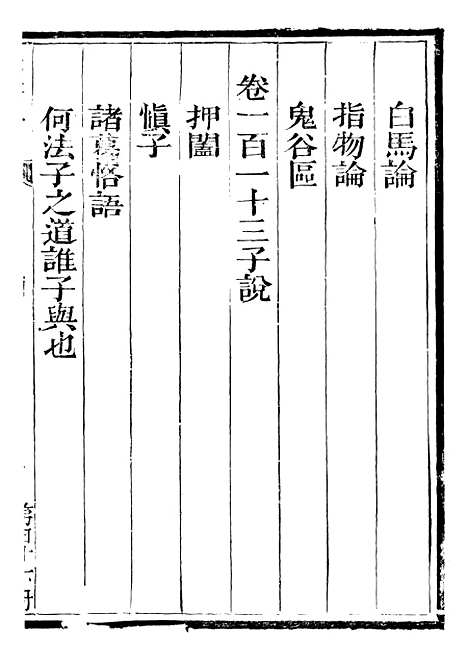 白馬論
指物論
鬼谷區
卷一百一十三子說
押闔
慎子
諸萬恪語
何法子之道誰子與也